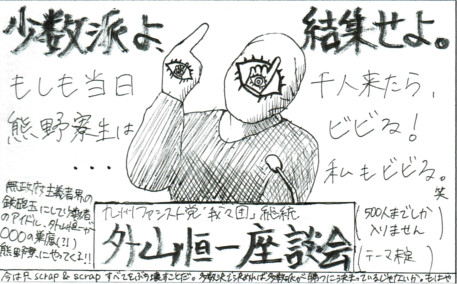 少数派よ、結集せよ。
もしも当日
熊野寮生は
・・・
千人来たら、
ビビる！
私もビビる。
笑
無政府主義者界の
鉄砲玉にして
のアイドル、外山恒一が
〇〇〇の
熊野寮にやってくる!!
九州ファシスト党「我々団」総統
外山恒一座談会
(500人までしか
入りません)
(テーマ未定)
今は只scrap & scrap すべてをぶち壊すことだ。多数決で決めれば多数派が勝つに決まっているじゃないか。もはや